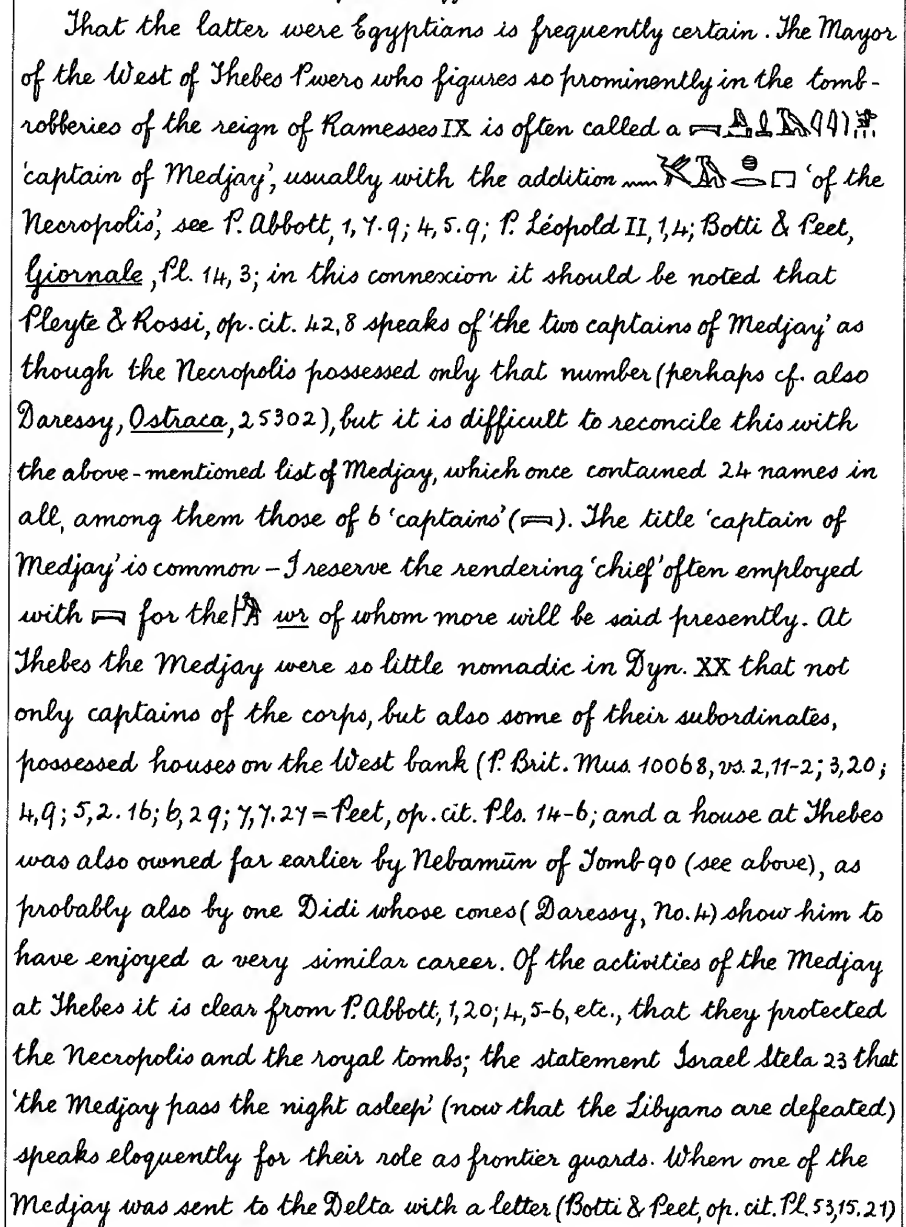 That the latter were Egyptians is frequently certain. The Mayor
of the West of Thebes Pwero who figures so prominently in the tomb-
robberies of the reign of Ramesses IX is often called a
'captain of Medjay', usually with the addition 'of the
Necropolis', see P. Abbott, 1, 7.9; 4, 5.9; P. Léopold II, 1,4; Botti & Peet,
Giornale, Pl. 14, 3; in this connexion it should be noted that
Pleyte & Rossi, op. cit. 42,8 speaks of 'the two captains of Medjay' as
though the Necropolis possessed only that number (perhaps cf. also
Daressy, Ostraca, 25302), but it is difficult to reconcile this with
the above-mentioned list of Medjay, which once contained 24 names in
all, among them those of 6 'captains' (𓏃). The title 'captain of
Medjay' is common – I reserve the rendering 'chief' often employed
with for the wr of whom more will be said presently. At
Thebes the Medjay were so little nomadic in Dyn. XX that not
only captains of the corps, but also some of their subordinates,
possessed houses on the West bank (P. Brit. Mus. 10068, vs. 2,11-2; 3,20;
4,9; 5,2.16; 6,29; 7,7.27 = Peet, op. cit. Pls. 14-6; and a house at Thebes
was also owned far earlier by Nebamūn of Tomb 90 (see above), as
probably also by one Didi whose cones (Daressy, No. 4) show him to
have enjoyed a very similar career. Of the activities of the Medjay
at Thebes it is clear from P. Abbott, 1,20; 4,5-6, etc., that they protected
the Necropolis and the royal tombs; the statement Israel Stela 23 that
'the Medjay pass the night asleep' (now that the Libyans are defeated)
speaks eloquently for their role as frontier guards. When one of the
Medjay was sent to the Delta with a letter (Botti & Peet, op. cit. Pl. 53,15.21)